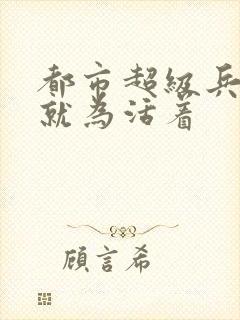 都市超级兵
就为活着
顾言希